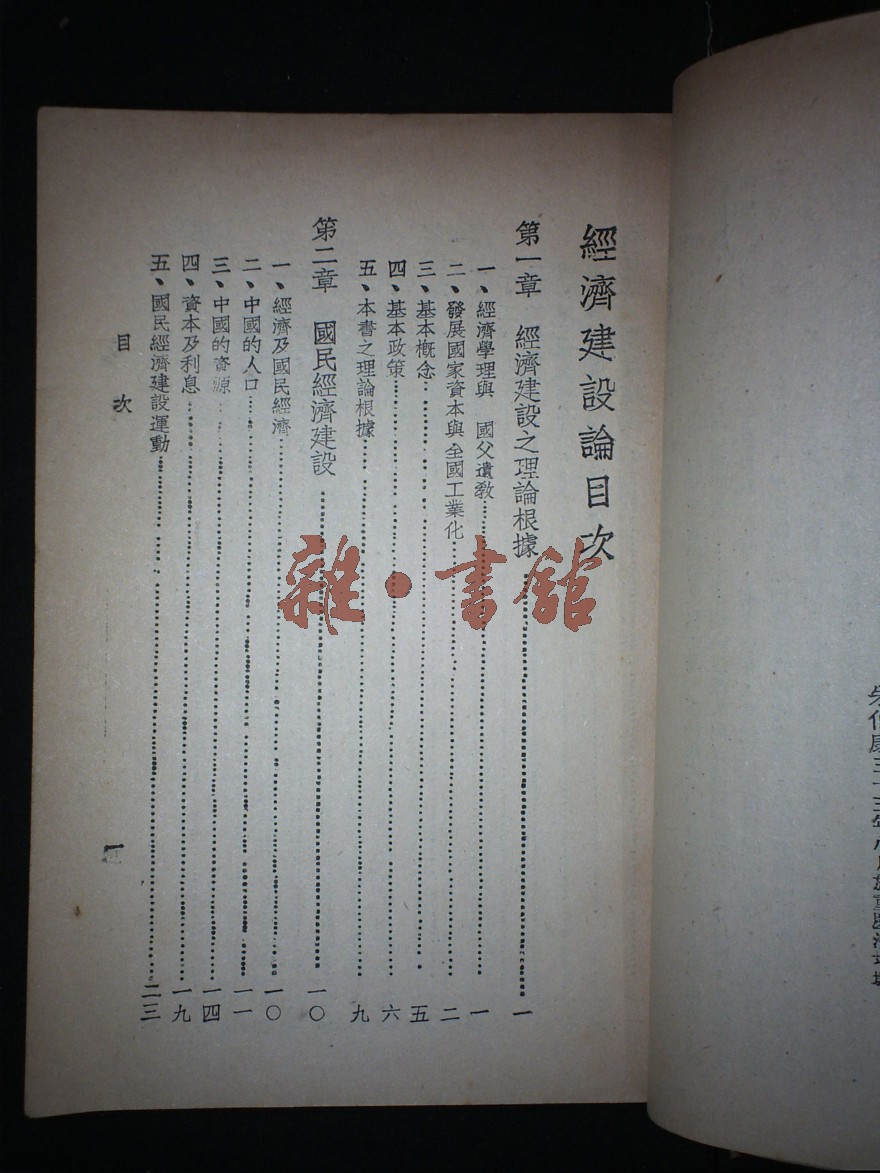 經濟建設論目次
第一章 經濟建設之理論根據……一
一、經濟學理與 國父遺教……一
二、發展國家資本與全國工業化……二
三、基本概念……五
四、基本政策……六
五、本書之理論根據……九
第二章 國民經濟建設……一〇
一、經濟及國民經濟……一〇
二、中國的人口……一一
三、中國的資源……一四
四、資本及利息……一九
五、國民經濟建設運動……二三
目次
一
雜·書館